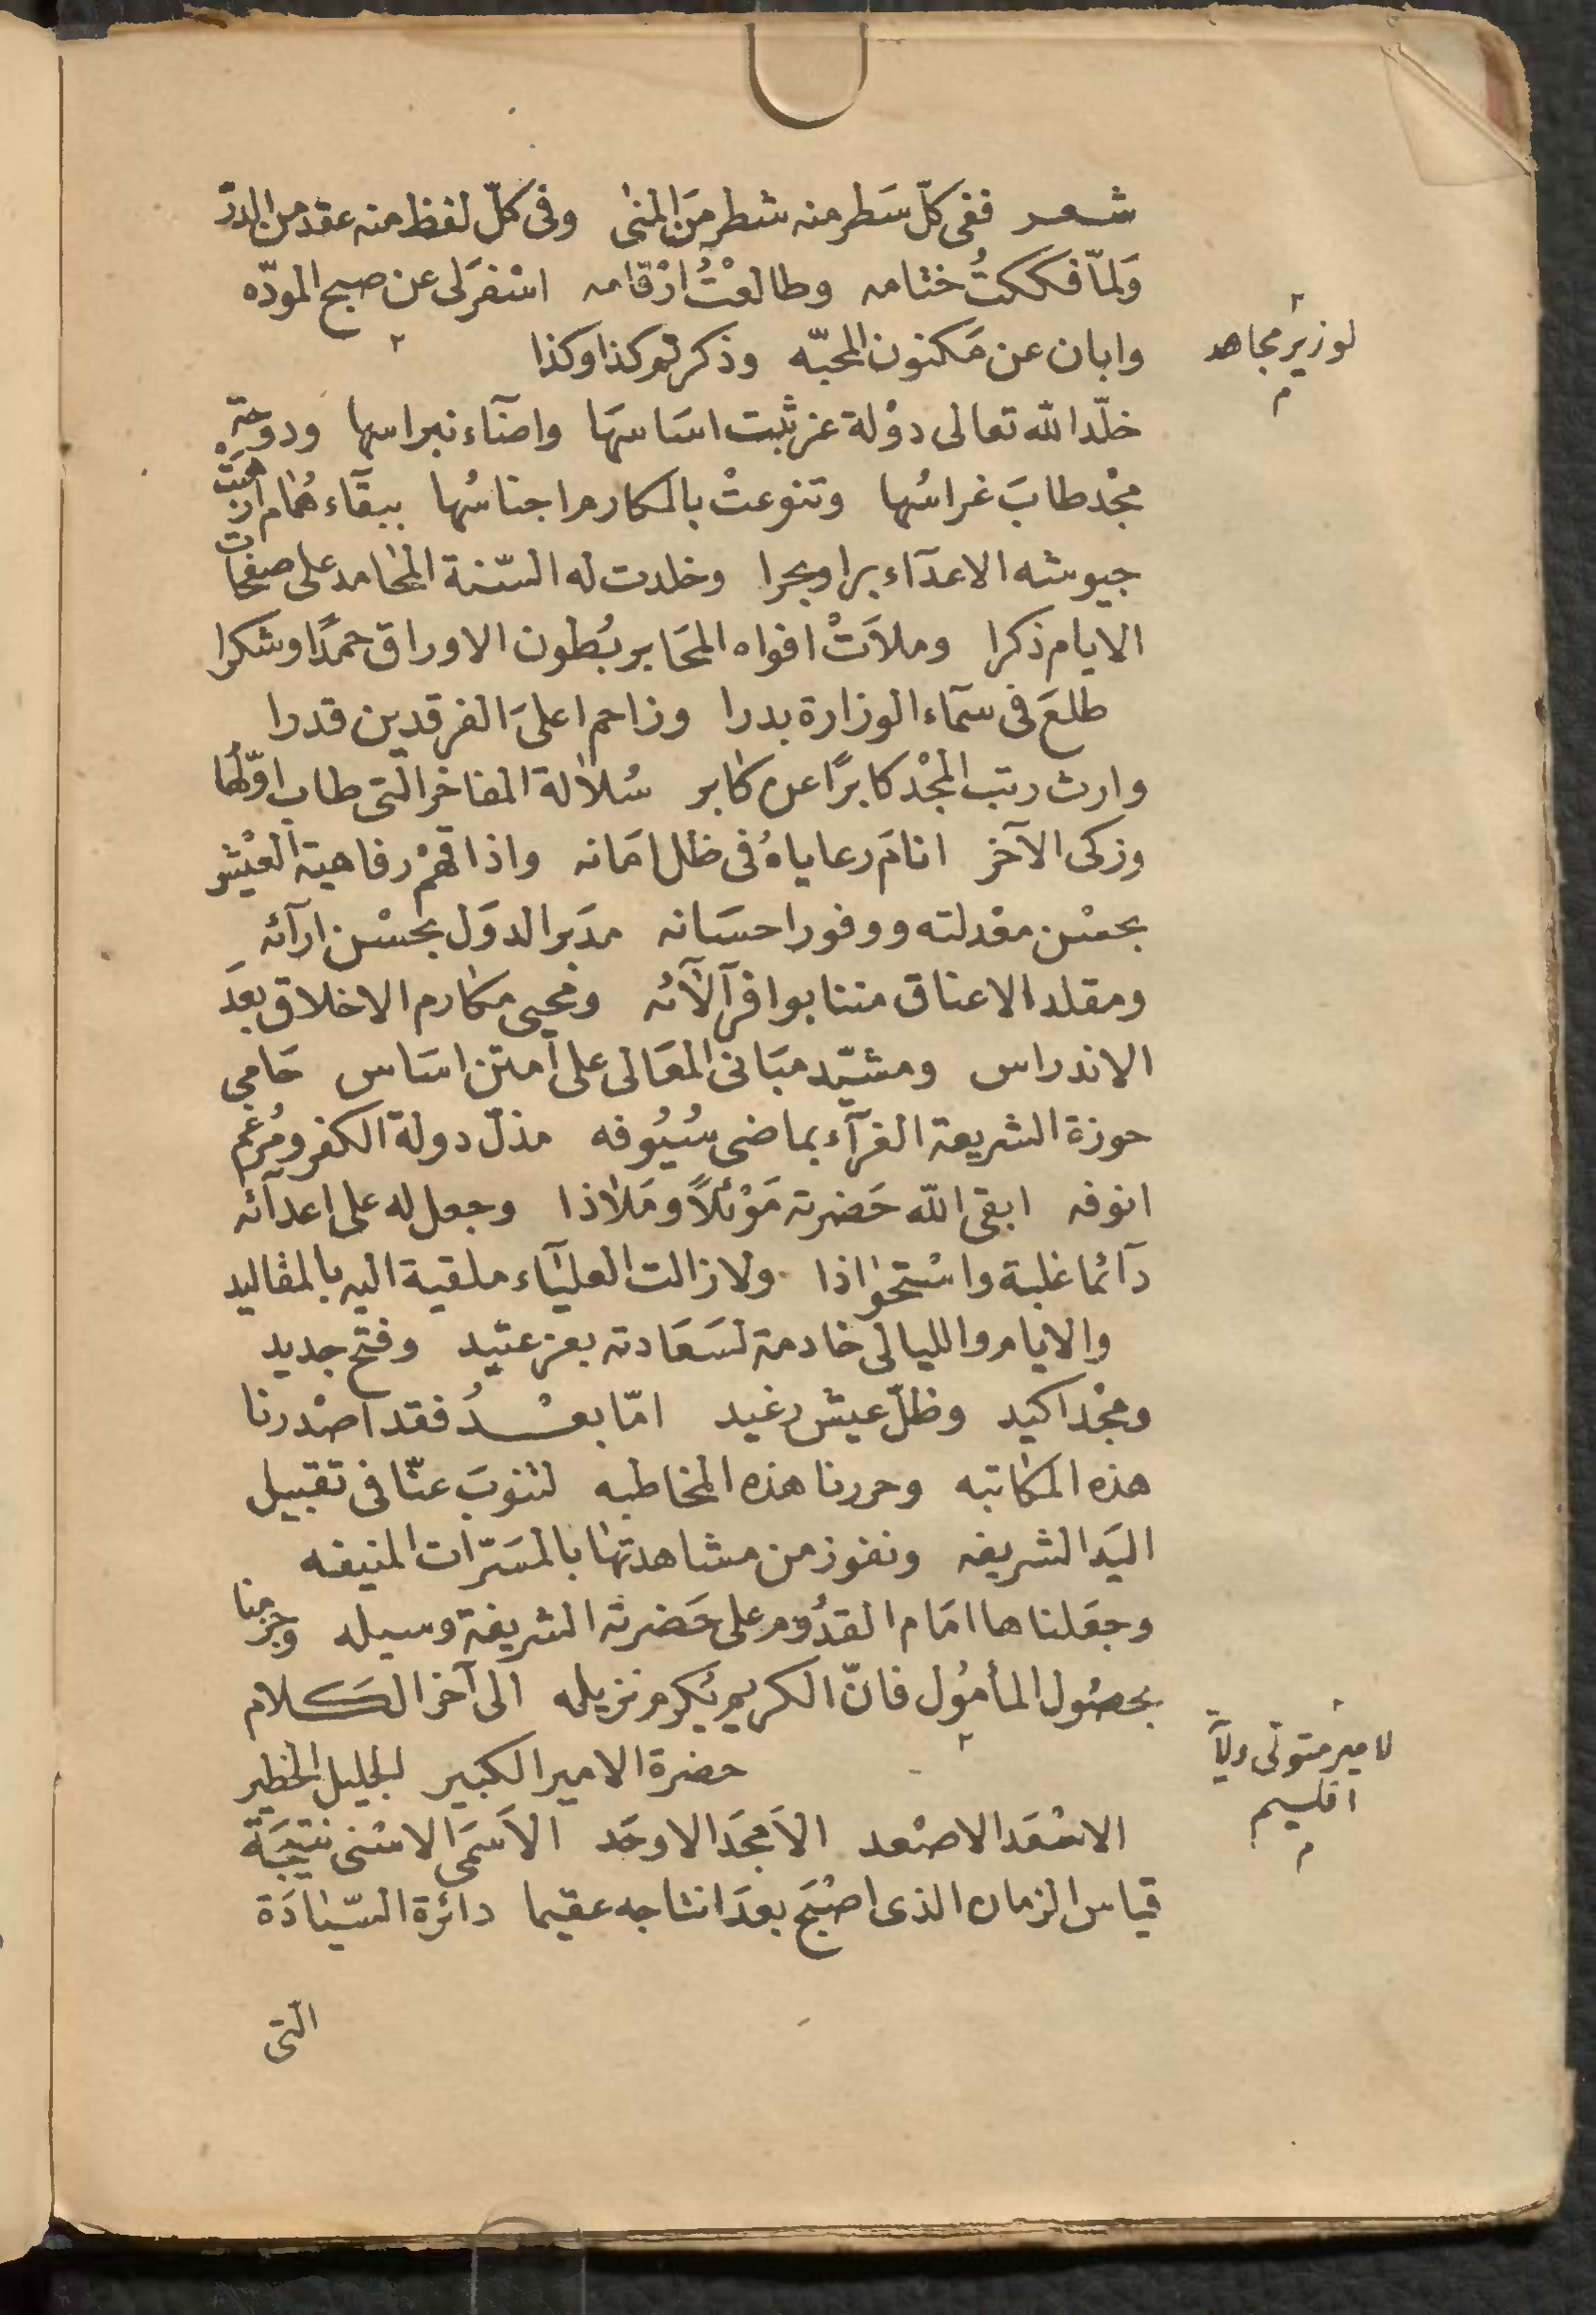 شعر ففى كلّ سَطر منه شطر مَن المنى وفى كلّ لفظ منه عقد من الدرّ
وَلمّا فككتُ ختامه وطالعْتُ ارْقامه اسْفرَ لى عن صبح المودّه
وابان عن مَكنون المحبّه وذكرتم كذا وكذا
لوزير مجاهد
خلّد الله تعالى دوْلة عز ثبت اسَاسهَا واضآء نبراسها ودوحة
مجْد طابَ غراسُها وتنوعتْ بالمكارم اجناسُها ببقآء هُمام ارهبَتْ
جيوشه الاعدآء برا وبحرا وخلدت له السّنة المحامد على صفحات
الايام ذكرا وملاَتْ افواه المحَابر بُطون الاوراق حمدًا وشكرا
طلعَ فى سمآء الوزارة بدرا وزاحم اعلىَ الفرقدين قدرا
وارث رتب المجْد كابرًا عن كابر سُلالة المفاخر الّتى طاب اوّلها
وزكى الآخر انامَ رعاياهُ فى ظل امَانه واذاقهمْ رفاهية العيْش
بحسْن معْدلته ووفور احسَانه مدَبر الدوَل بحسْن ارآئه
ومقلد الاعناق مننا بوافر آلآئه ومحيى مكارم الاخلاق بعدَ
الاندراس ومشيّد مبَانى المعَالى على امتن اسَاس حَامى
حوزة الشريعة الغرآء بماضى سُيُوفه مذلّ دولة الكفر ومُرغم
انوفه ابقى الله حَضرته مَوْئلاً ومَلاذا وجعل له على اعدآئه
دآئما غلبة واسْتحواذا ولا زالت العليَآء ملقية اليه بالمقاليد
والايام والليالى خادمة لسَعَادته بعز عتيد وفتح جديد
ومجْد اكيد وظلّ عيش رغيد امّا بعْدُ فقد اصْدرنا
هذه المكاتبه وحررنا هذه المخاطبه لتنوبَ عنّا فى تقبيل
اليَد الشريفه ونفوز من مشاهدتها بالمسَرّات المنيفه
وجعَلناها امَام القدُوم على حَضرته الشريفة وسيله وجزمنا
بحصُول المأمُول فانّ الكريم يُكرم نزيله الى آخر الكلام
لامير متولى ولاية
اقليم
حضرة الامير الكبير الجليل الخطير
الاسْعَد الاصْعد الاَمجَد الاوحَد الاَسمَى الاسْنى نتيجَة
قياس الزمان الذى اصْبَح بعدَ انتاجه عقيما دائرة السّيَادَة
الّتى